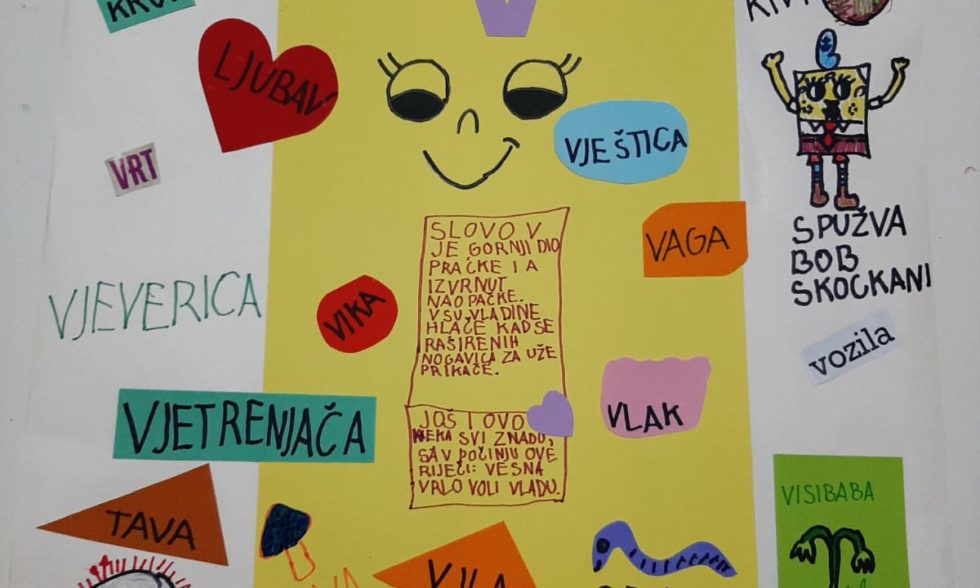 LJUBAV
VJEŠTICA
VRT
VAGA
SPUŽVA
BOB
SKOCKANI
VJEVERICA
VIKA
SLOVO V
JE GORNJI DIO
PRAČKE I A
IZVRNUT
NAOPAČKE.
V SU VLADINE
HLAČE KAD SE
RAŠIRENIH
NOGAVICA ZA UŽE
PRIKAČE.
vozila
VLAK
VJETRENJAČA
JOŠ I OVO
NEKA SVI ZNADU,
SA V POČINJU OVE
RIJEČI: VESNA
VRLO VOLI VLADU.
TAVA
VISIBABA